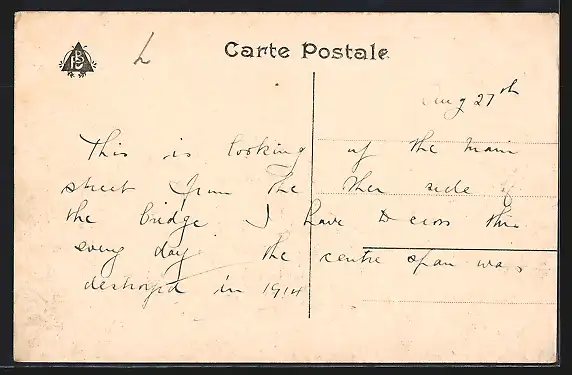 Carte Postale
Aug 27th
This is looking up the main
street from the other side of
the bridge I have to cross this
every day the centre span was
destroyed in 1914